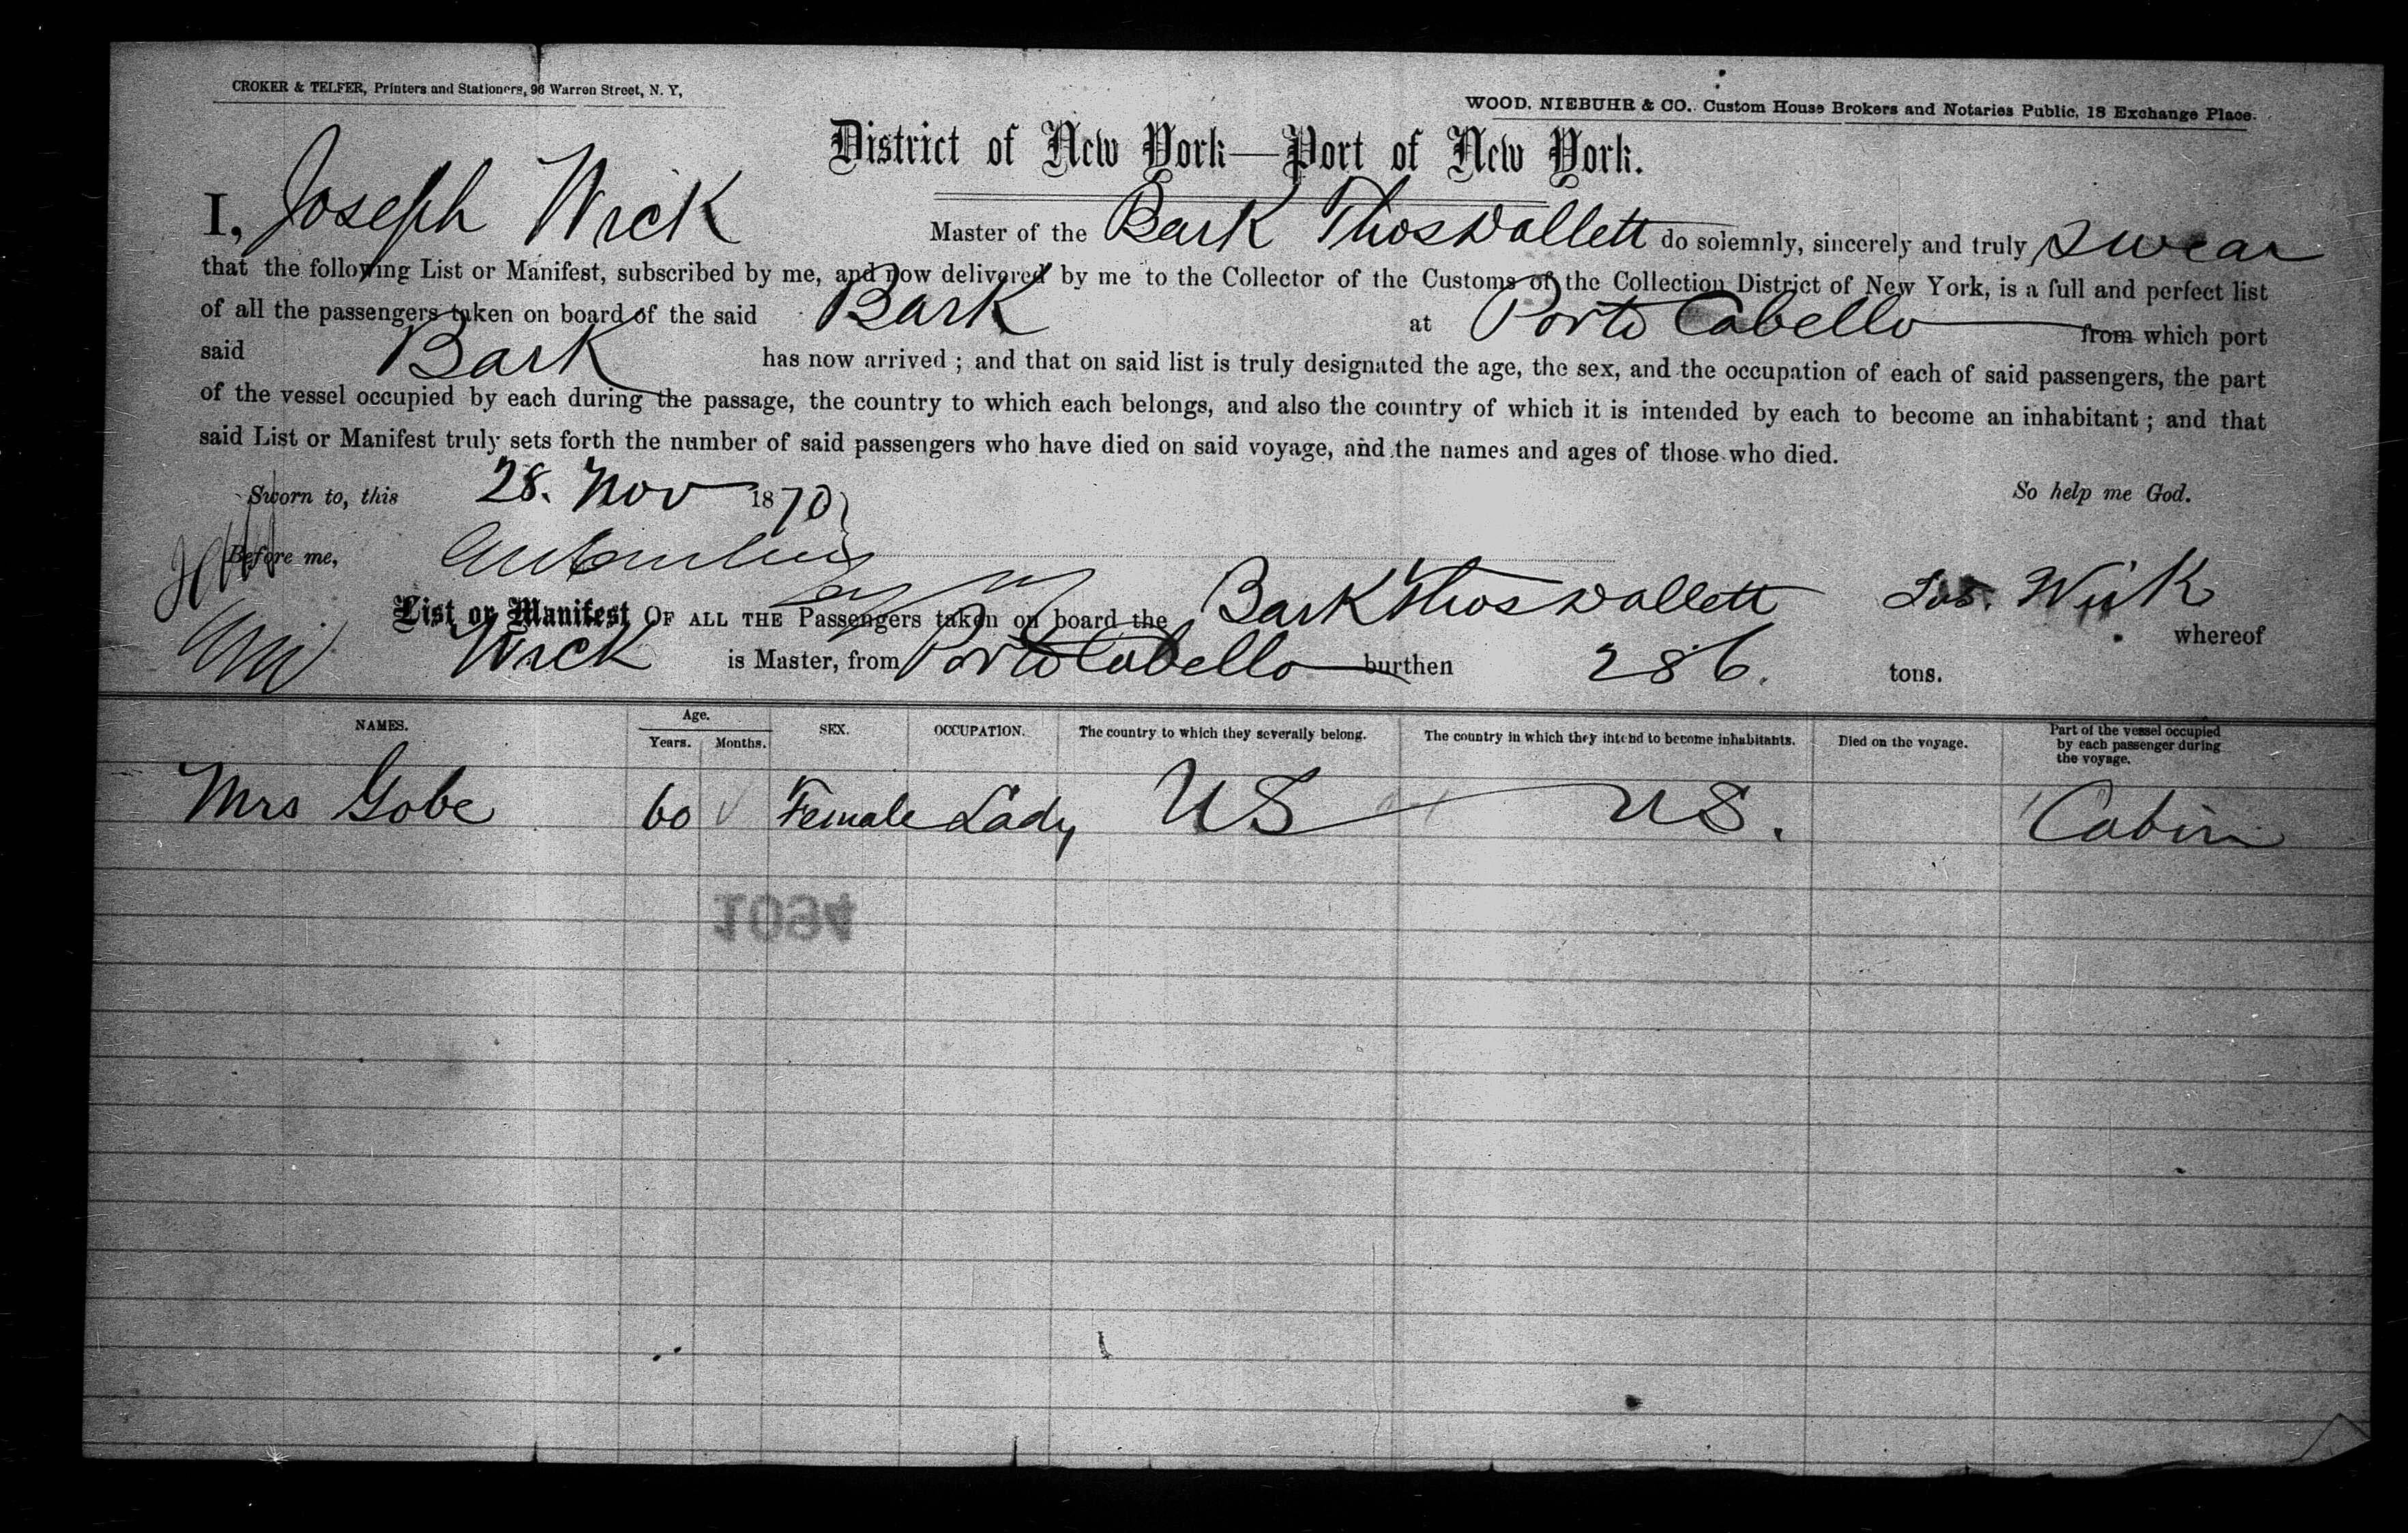 CROKER & TELFER, Printers and Stationers, 96 Warren Street, N. Y,
WOOD, NIEBUHR & CO. Custom House Brokers and Notaries Public, 18 Exchange Place.
District of New York—Port of New York.
I, Joseph Wick Master of the Bark Thos Dallett do solemnly, sincerely and truly swear
that the following List or Manifest, subscribed by me, and now delivered by me to the Collector of the Customs of the Collection District of New York, is a full and perfect list
of all the passengers taken on board of the said Bark at Porto Cabello from which port
said Bark has now arrived ; and that on said list is truly designated the age, the sex, and the occupation of each of said passengers, the part
of the vessel occupied by each during the passage, the country to which each belongs, and also the country of which it is intended by each to become an inhabitant ; and that
said List or Manifest truly sets forth the number of said passengers who have died on said voyage, and the names and ages of those who died.
Sworn to, this 28. Nov 1870 So help me God.
Before me,
Jos. Wick
List or Manifest OF ALL THE Passengers taken on board the Bark Thos Dallett whereof
Wick is Master, from Porto Cabello burthen 286. tons.
NAMES. Age. Years. Months. SEX. OCCUPATION. The country to which they severally belong. The country in which they intend to become inhabitants. Died on the voyage. Part of the vessel occupied by each passenger during the voyage.
Mrs Gobe 60 Female Lady US US. Cabin
1094